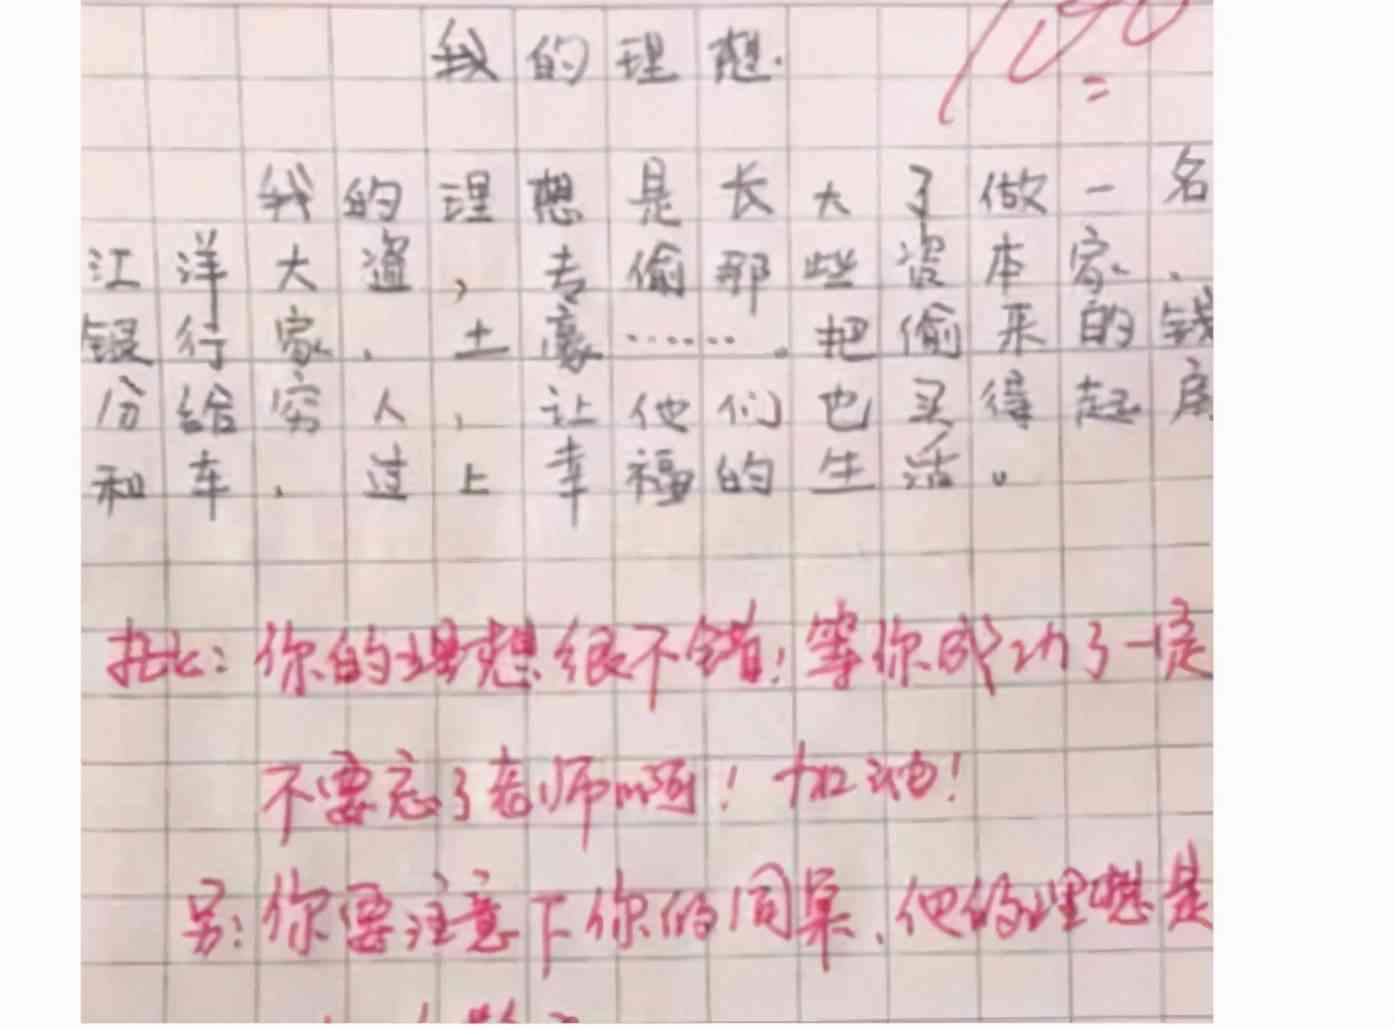 我的理想.
100
我的理想是长大了做一名
江洋大盗,专偷那些资本家、
银行家、土豪……。把偷来的钱
分给穷人,让他们也买得起房
和车,过上幸福的生活。
批:你的理想很不错!等你成功了一定
不要忘了老师啊!加油!
另:你要注意下你的同桌、他的理想是